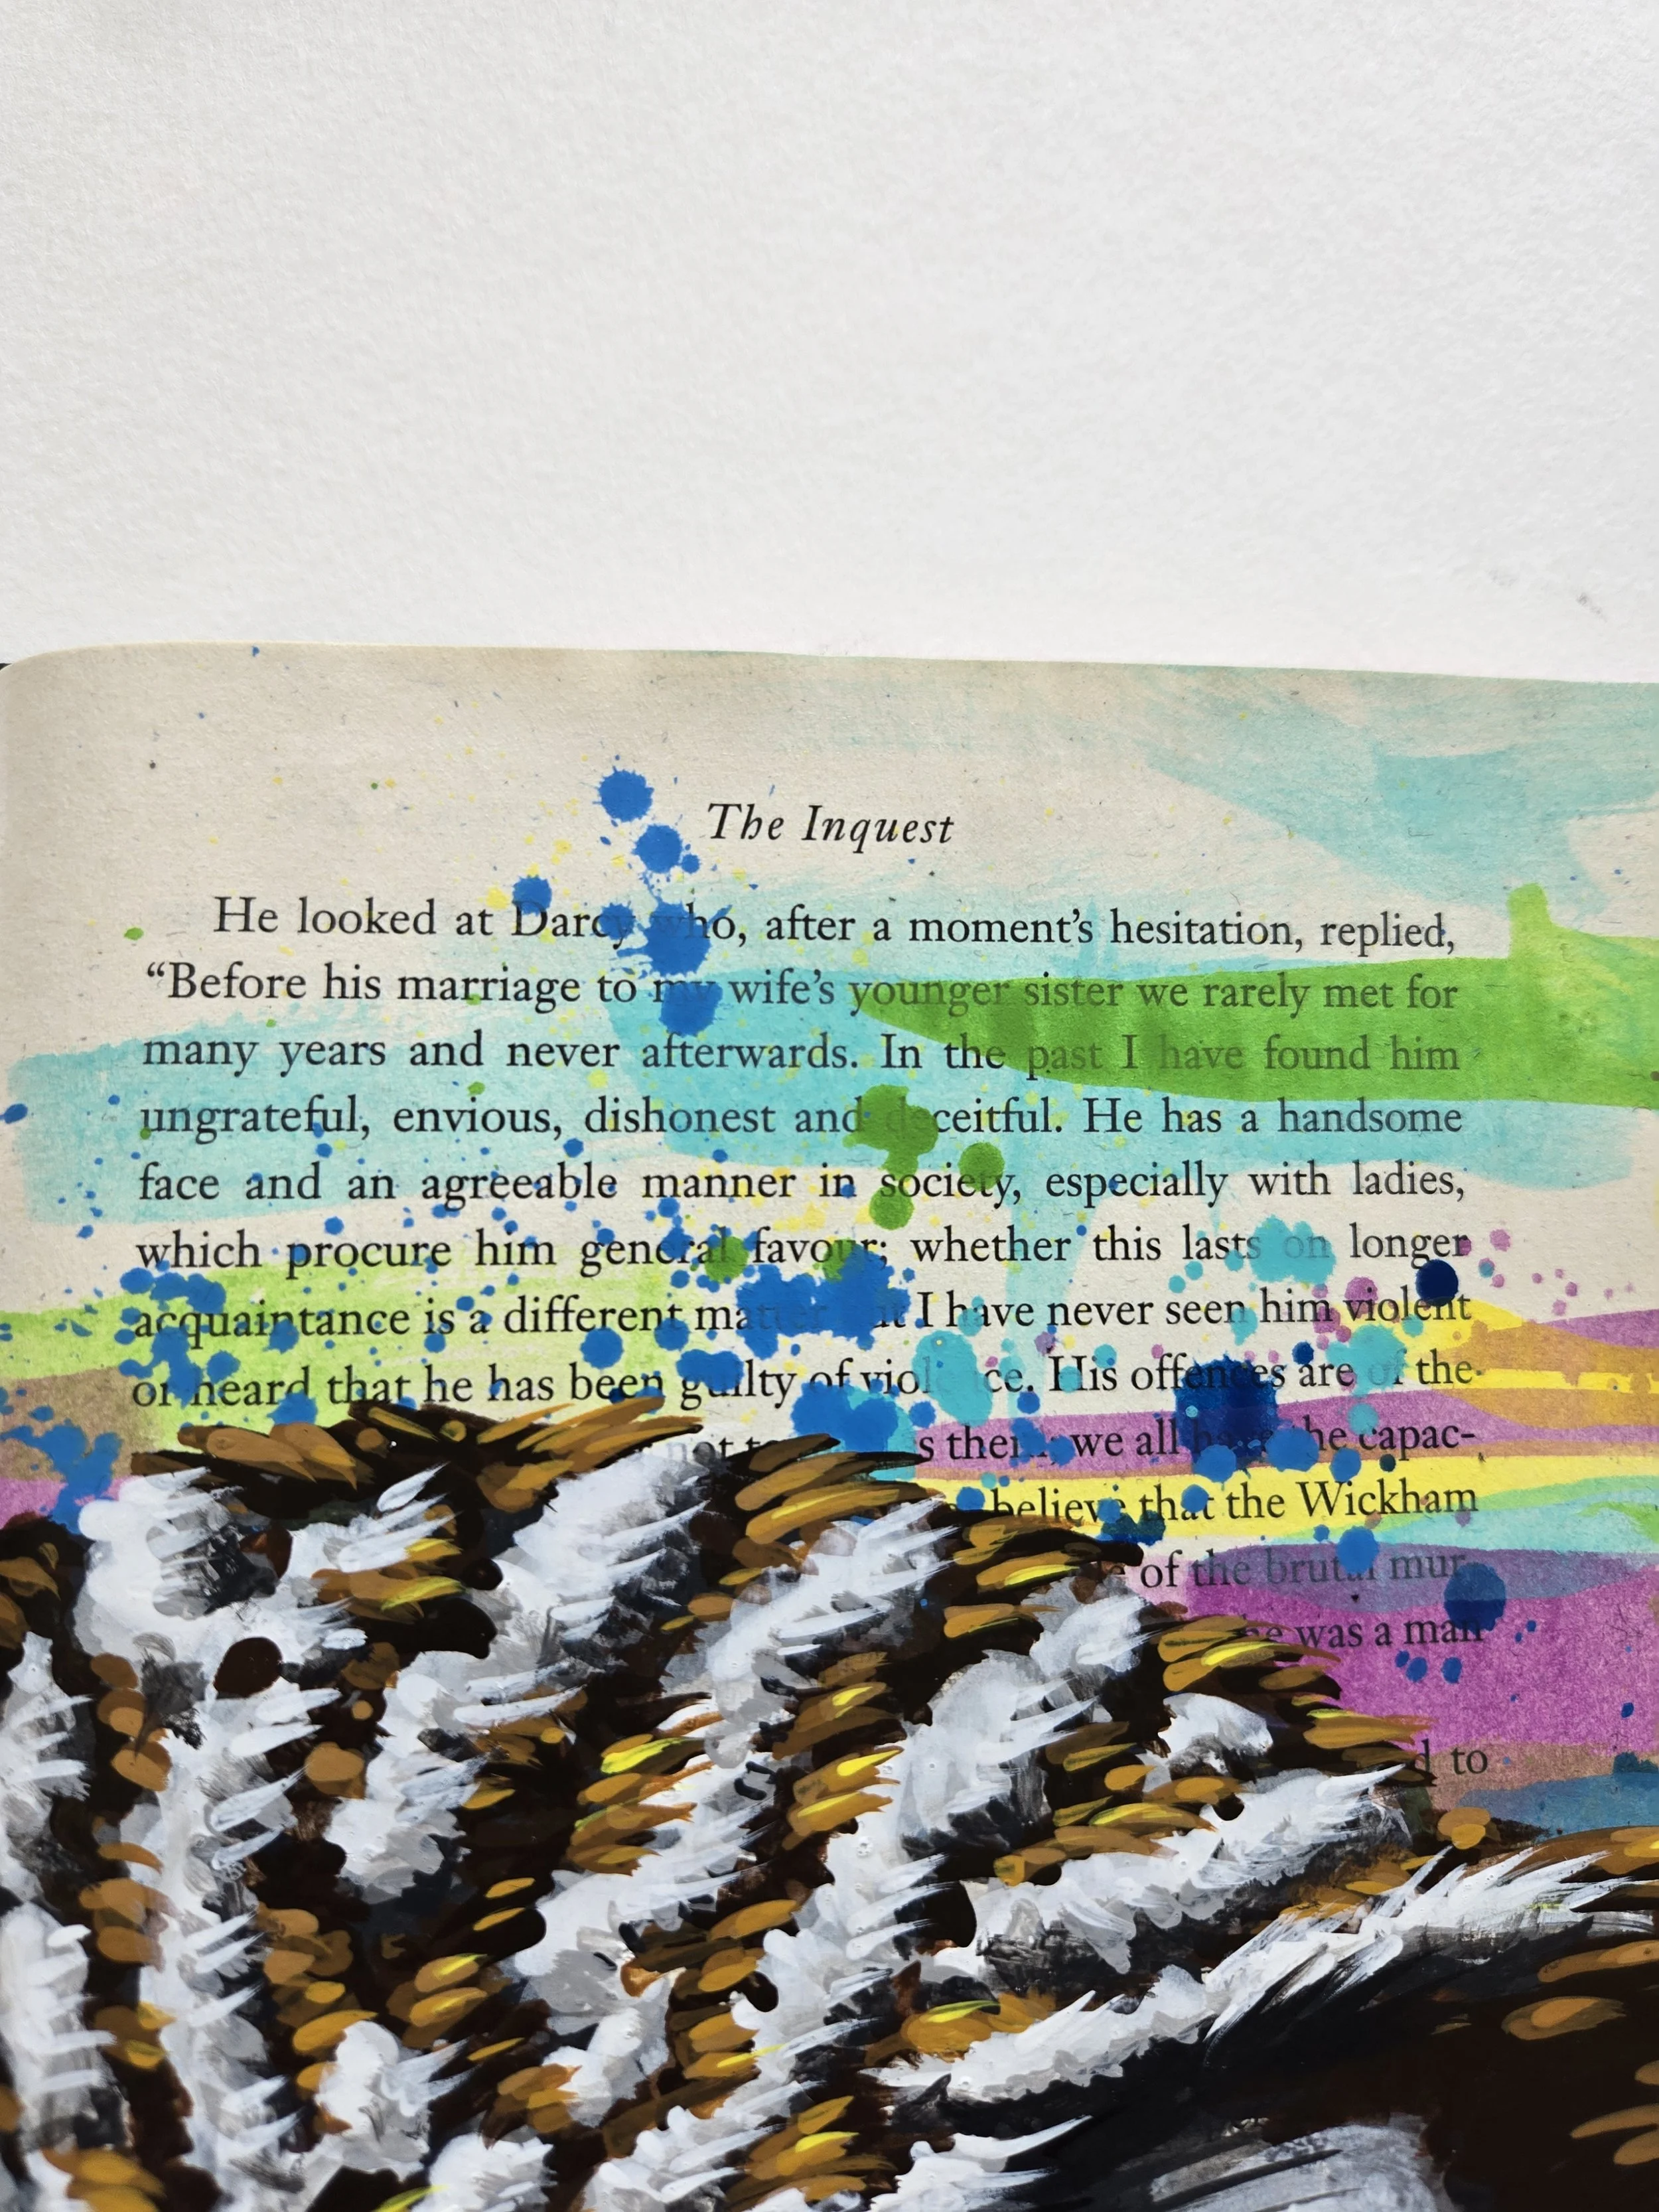 The Inquest
He looked at Darcy who, after a moment's hesitation, replied,
“Before his marriage to my wife's younger sister we rarely met for
many years and never afterwards. In the past I have found him
ungrateful, envious, dishonest and deceitful. He has a handsome
face and an agreeable manner in society, especially with ladies,
which procure him general favour; whether this lasts on longer
acquaintance is a different matter but I have never seen him violent
or heard that he has been guilty of violence. His offences are of the
not we all have the capac-
believe that the Wickham
of the brutal mur
was a man
to